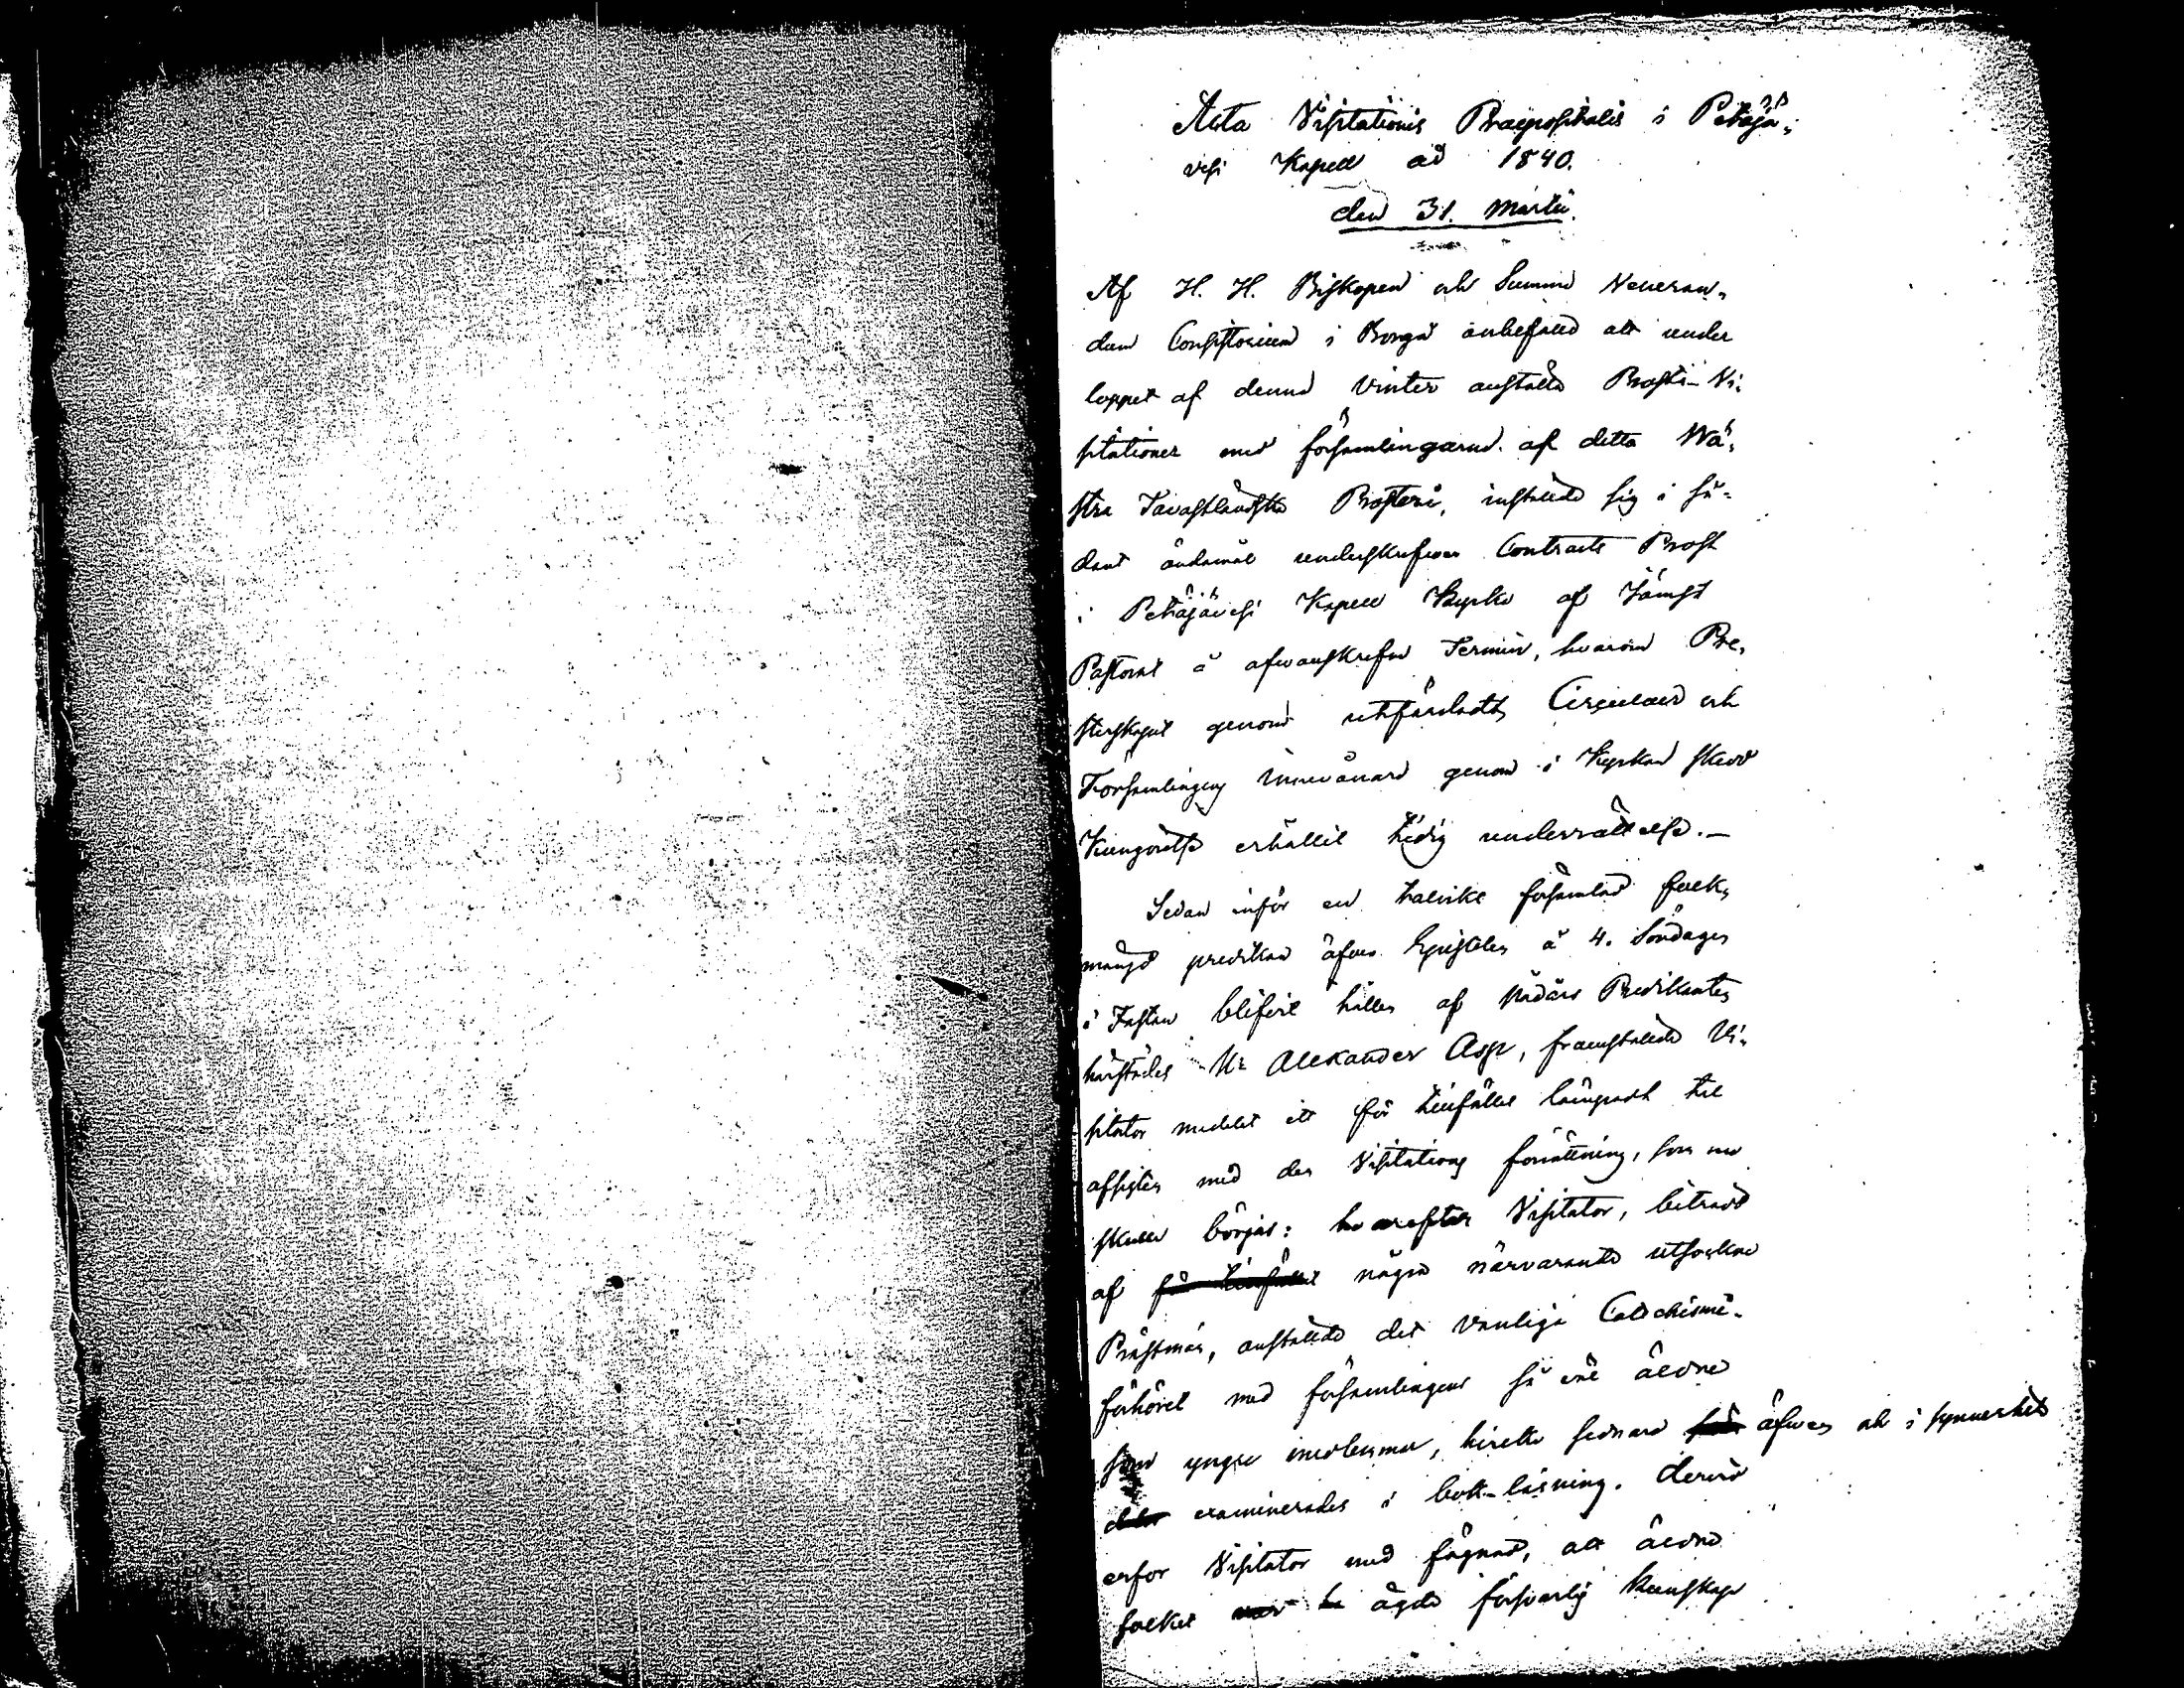 Acta Visitationis Praepositalis i Petäjä,
vesi Kapell ad 1840.
den 31. Martii.
Af H. H. Biskopen och Summe Veneran,
dum Consistorium i Borgå anbefalld att under
loppet af denna Vinter anställa Prosti-Vi,
sitationer med församlingarne af detta Wä,
stra Tavastländska Prosteri, inställde sig i så-
dant ändamål underskrefven Contracts Prost
i Petäjävesi Kapell Kyrka af Jämsä
Pastorat å ofvanskrefne Termin, hvarom Pre,
sterskapet genom utfärdadt Circulaire och
Församlingens Innevånare genom i Kyrkan skedd
Kungörelse erhållit tidig underrättelse.—
Sedan inför en talrikt församlad folk,
mängd predikan öfver Epistelen å 4. Söndagen
i Fastan blifvit hållen af Nådårs Predikanten
härstädes Hr Alexander Asp, framställde Vi,
sitator medelst ett för tillfället lämpadt tal
afsigten med den Visitations förrättning, som nu
skulle börjas: hvarefter Visitator, biträdd
af för tillfället några närvarande utsockne
Prästmän, anställde det vanliga Catechismi-
förhöret med församlingens så väl äldre
som yngre medlemmar, hvilka sednare äfven och i synnerhet
examinerades i bok-läsning. Dervid
erfor Visitator med fägnad, att äldre
folket var ägde försvarlig kunskap